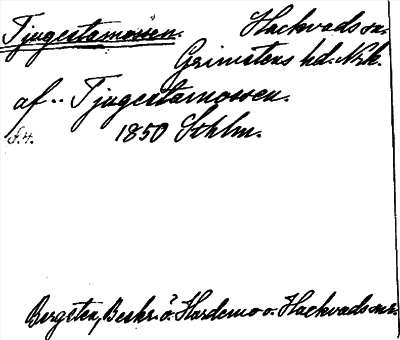 Tjugestamossen. Hackvads sn.
Grimstens hd. Nrk.
af .. Tjugestamossen.
s. 4. 1850 Sthlm.
Bergsten, Beskr. ö. Hardemo o. Hackvads snr.